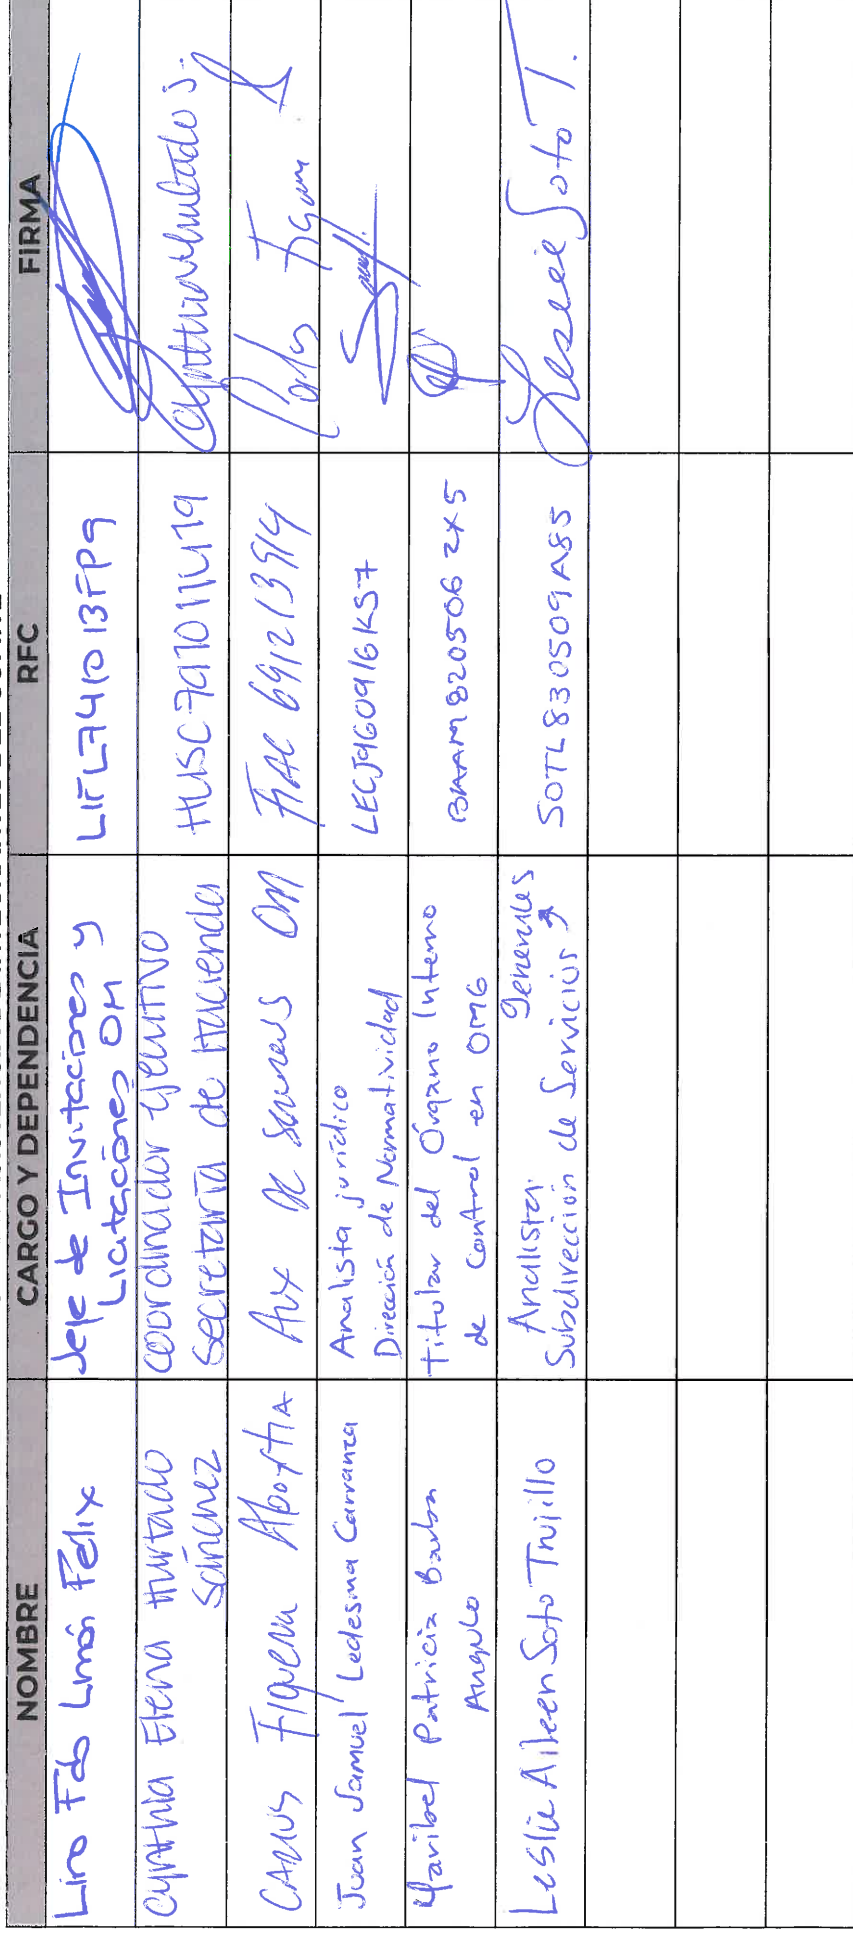 NOMBRE CARGO Y DEPENDENCIA RFC FIRMA
Lino Fdo Limón Félix
Jefe de Invitaciones y
Licitaciones OM
LIFL741013FP9
Cynthia Elena Hurtado
Sánchez
Coordinador Ejecutivo
Secretaría de Hacienda
HUSC791011419
Carlos Figueroa
Aux de OM
Juan Samuel Ledesma Carranza
Analista jurídico
Dirección de Normatividad
LECJ960916KS7
Maribel Patricia Barba
Angulo
Titular del Órgano Interno
de Control en OMG
BAAM820506 2X5
Leslie Aileen Soto Trujillo
Analista.
Subdirección de Servicios
Generales
SOTL830509A85
Leslie Soto T.